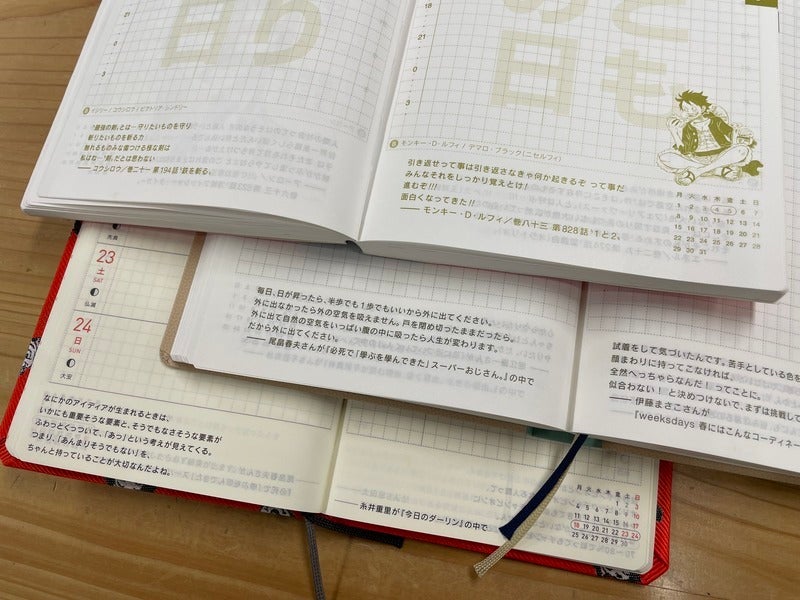 21
3
日
り
イジリー / コウシロウ / ビクトリア・シンドリー
「最強の剣」とは…守りたいものを守り
斬りたいものを斬る力
触れるものみな傷つける様な剣は
私はな…「剣」だとは思わない
コウシロウ/巻二十一 第194話“鉄を斬る”
18
21
0
3
の日
とも
モンキー・D・ルフィ / デマロ・ブラック(ニセルフィ)
引き返せって事は引き返さなきゃ何か起きるぞ って事だ
みんなそれをしっかり覚えとけ!
進むぞ!!!
面白くなってきた!!
モンキー・D・ルフィ/巻八十三 第828話“1と2”
月 火 水 木 金 土 日
1 2 3 4 5 6 7
8 9 10 11 12 13 14
15 16 17 18 19 20 21
22 23 24 25 26 27 28
29 30 31
先負
23
土
SAT
仏滅
24
日
SUN
大安
毎日、日が昇ったら、半歩でも1歩でもいいから外に出てください。
外に出なかったら外の空気を吸えません。戸を閉め切ったままだったら。
外に出て自然の空気をいっぱい腹の中に吸ったら人生が変わります。
だから外に出てください。
尾畠春夫さんが『必死で「学ぶを学んできた」スーパーおじさん。』の中で
試着をして気づいたんです。苦手としている色を
顔まわりに持ってこなければ、
全然へっちゃらなんだ! ってことに。
似合わない! と決めつけないで、まずは挑戦して
伊藤まさこさんが
『weeksdays 春にはこんなコーディネー
なにかのアイディアが生まれるときは、
いかにも重要そうな要素と、そうでもなさそうな要素が
ふわっとくっついて、「あっ」という考えが見えてくる。
つまり、「あんまりそうでもない」を、
ちゃんと持っていることが大切なんだよね。
糸井重里が『今日のダーリン』の中で
月 火 水 木 金 土 日
1 2 3
4 5 6 7 8 9 10
11 12 13 14 15 16 17
18 19 20 21 22 23 24
25 26 27 28 29 30